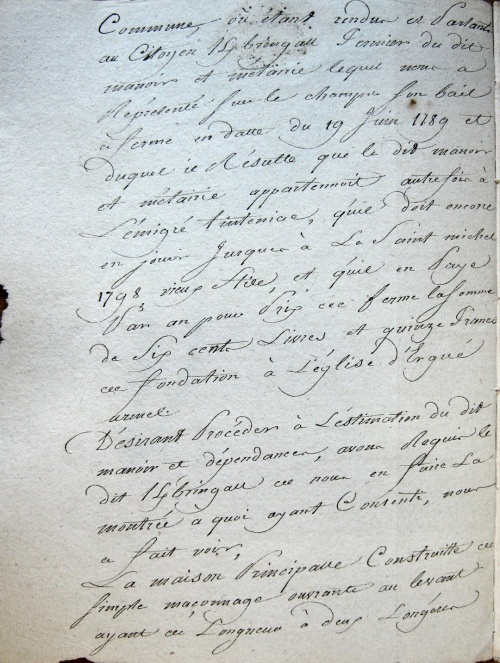 Commune, où étant rendus et Parlant
au Citoyen Fermier du dit
manoir et métairie lequel nous a
Représenté sur le champs son bail
à ferme en datte du 19 Juin 1789 et
duquel il Résulte que le dit manoir
et métairie appartennoit autrefois à
L'émigré tinteniac, qu'il doit encore
en jouir Jusques à La Saint michel
1798 vieux Stile, et qu'il en Paye
Par an pour Prix de ferme la somme
de Six cents Livres et quinze Francs
de fondation à L'église d'Ergué
armel.
Désirant Procéder à L'éstimation du dit
manoir et dépendances, avons Requis le
dit de nous en faire La
montrée à quoi ayant Consenti, nous
a fait voir,
La maison Principalle Construitte de
simple maçonnage ouvrante au levant
ayant de Longueur à deux Longères